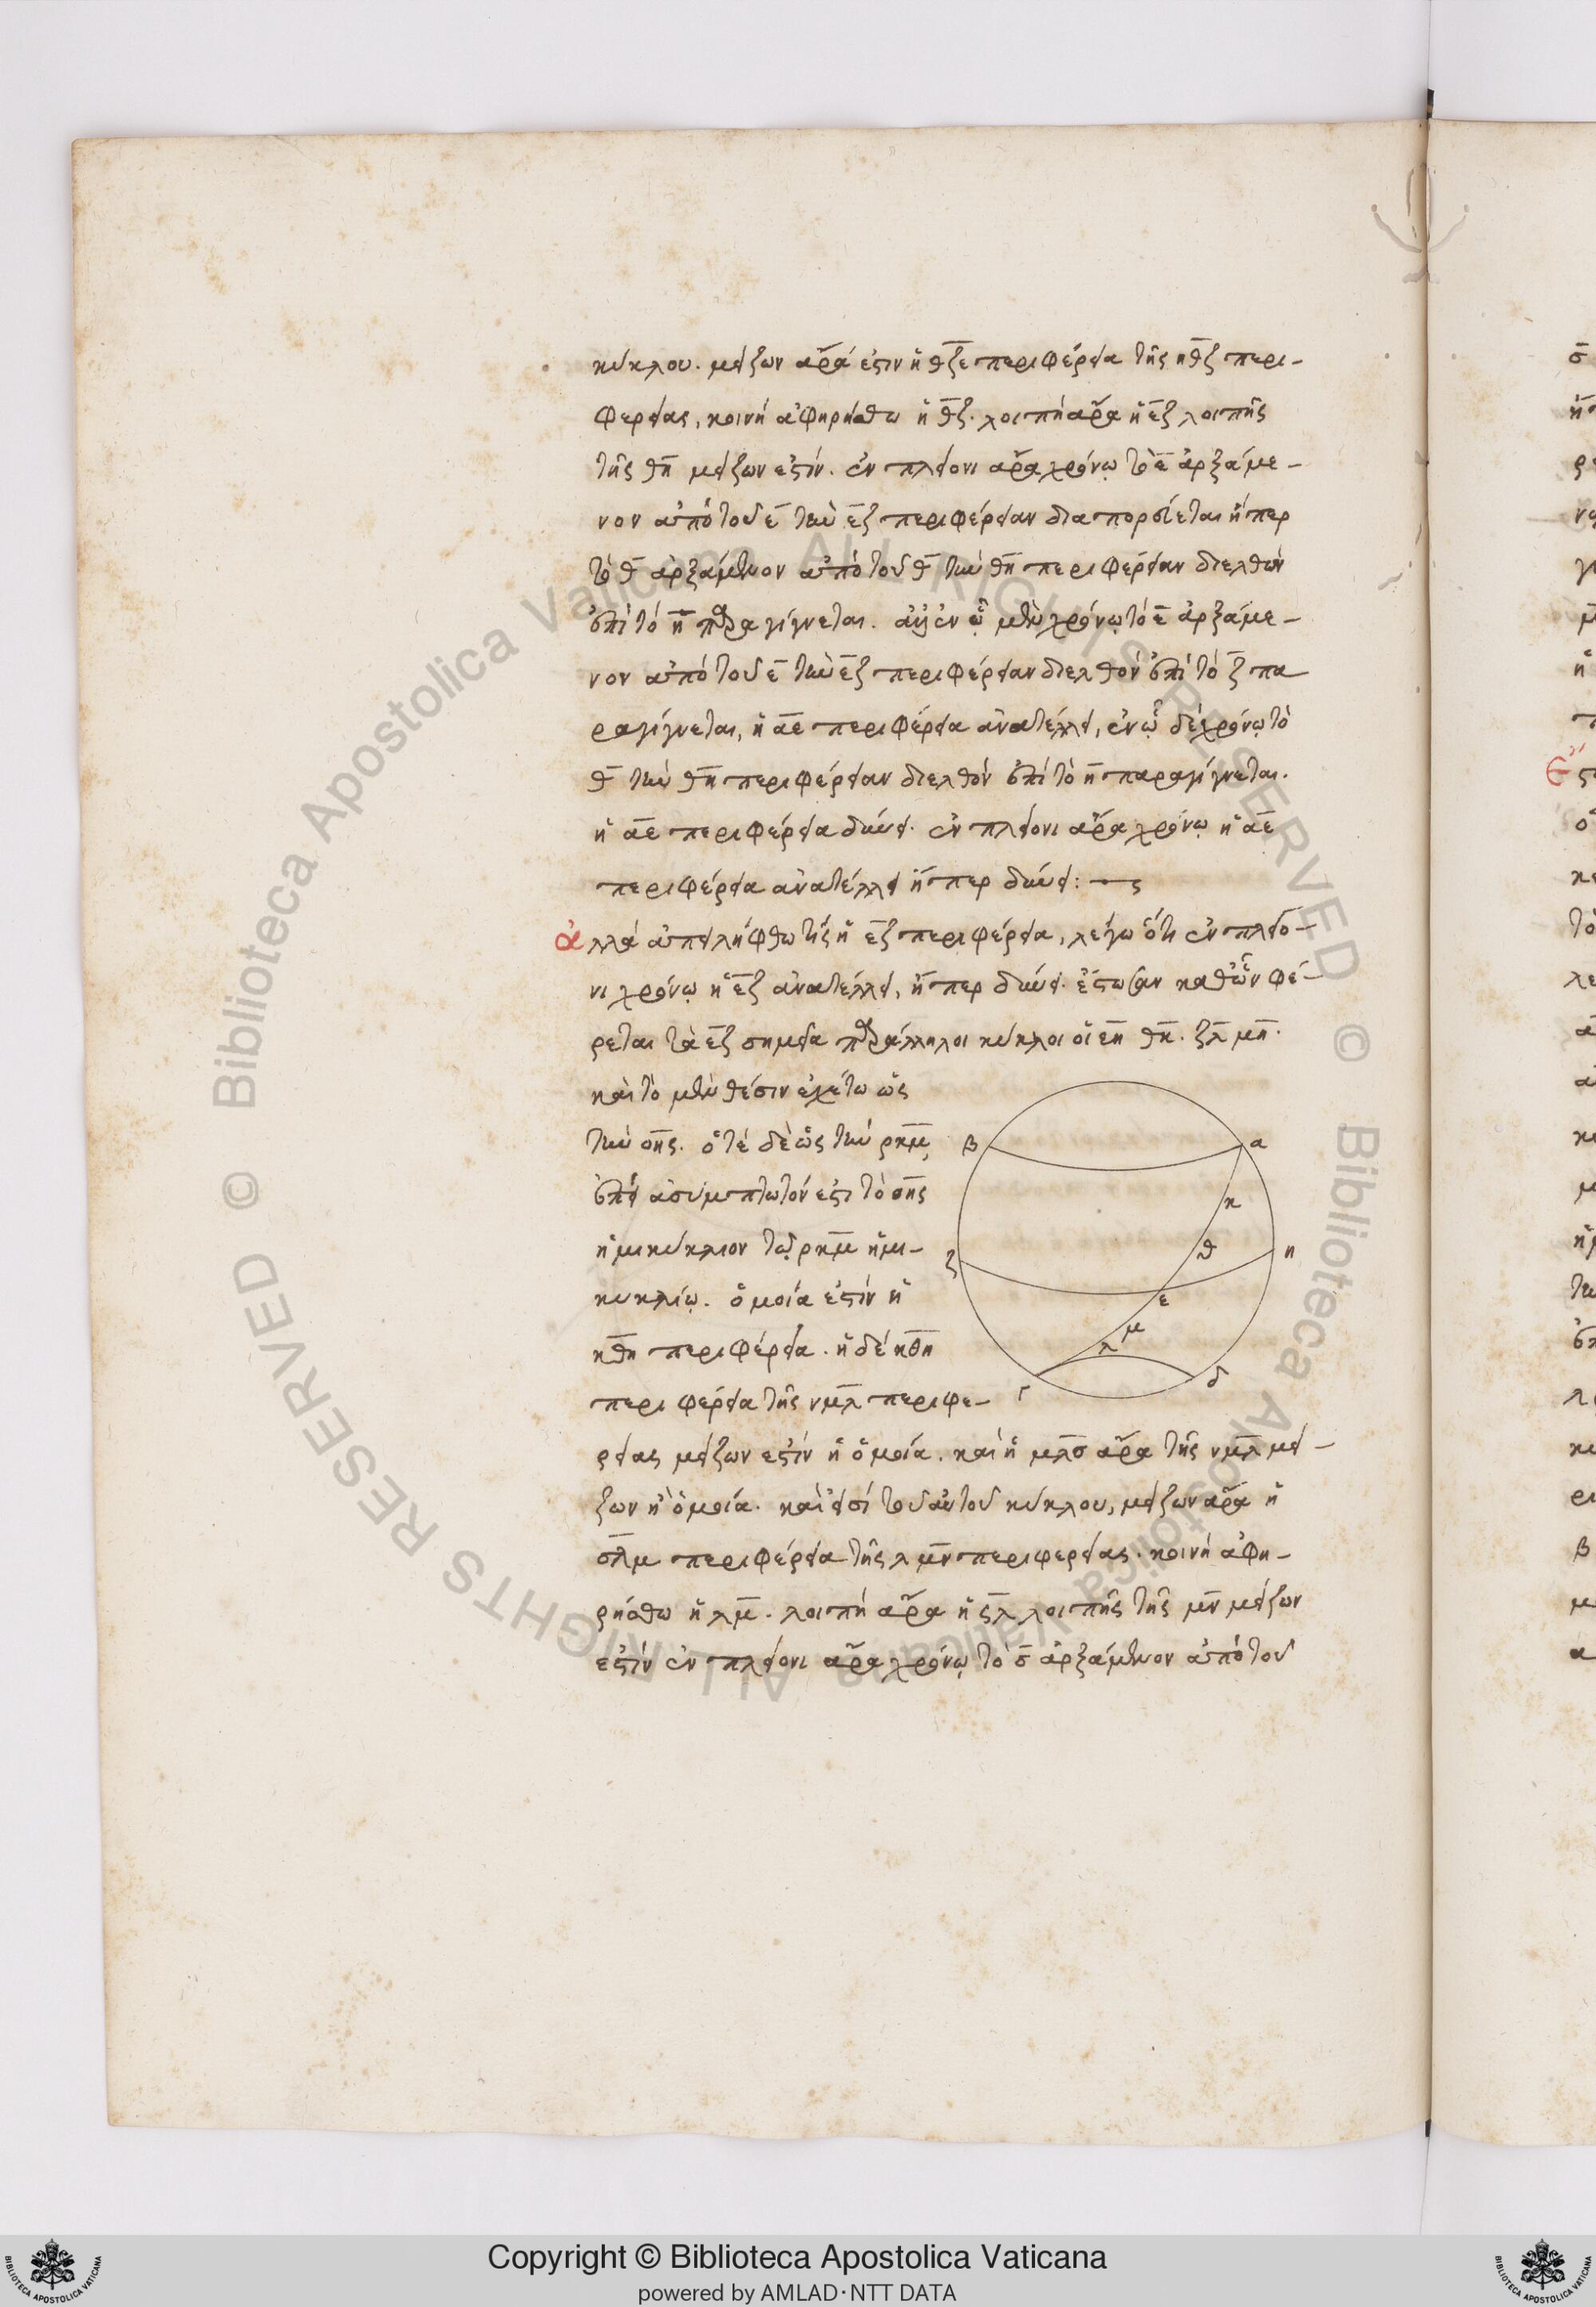 κύκλου. μείζων ἄρα ἐστὶν ἡ θζε περιφέρεια τῆς ηθζ περι-
φερείας, κοινὴ ἀφηρήσθω ἡ θζ. λοιπὴ ἄρα ἡ εζ λοιπῆς
τῆς θη μείζων ἐστίν. ἐν πλείονι ἄρα χρόνω τὸ ε ἀρξάμε-
νον ἀπὸ τοῦ ε τὴν εζ περιφέρειαν διαπορεύεται ἤπερ
τὸ θ ἀρξάμενον ἀπὸ τοῦ θ τὴν θη περιφέρειαν διελθὸν
ἐπὶ τὸ η παραγίγνεται. ἀλλ' ἐν ᾧ μὲν χρόνῳ τὸ ε ἀρξάμε-
νον ἀπὸ τοῦ ε τὴν εζ περιφέρειαν διελθὸν ἐπὶ τὸ ζ πα
ραγίγνεται, ἡ αε περιφέρεια ἀνατέλλει, ἐν ᾧ δὲ χρόνῳ τὸ
θ τὴν θη περιφέρειαν διελθὸν ἐπὶ τὸ η παραγίγνεται.
ἡ αε περιφέρεια δύνει. ἐν πλείονι ἄρα χρόνῳ ἡ αε
περιφέρεια ἀνατέλλει ἤπερ δύνει:
ἀλλὰ ἀπειλήφθω τὶς ἡ εζ περιφέρεια, λέγω ὅτι ἐν πλείο-
νι χρόνῳ ἡ εζ ἀνατέλλει, ἤπερ δύνει. ἔστωσαν καθ' ὧν φέ-
ρεται τὰ εζ σημεῖα παράλληλοι κύκλοι οἱ εη θκ. ζλ μη.
καὶ τὸ μὲν θέσιν ἐχέτω ὡς
τὴν οης. ὁτὲ δὲ ὡς τὴν ρκμ,
ἐπεὶ ἀσύμπτωτόν ἐστι τὸ οης
ἡμικύκλιον τῷ ρκμ ἡμι-
κυκλίῳ. ὁμοία ἐστὶν ἡ
κθη περιφέρεια. ἡ δὲ κθη
περιφέρεια τῆς νμλ περιφε-
ρείας μείζων ἐστὶν ἢ ὁμοία. καὶ ἡ μλσ ἄρα τῆς νμλ μεί-
ζων ἢ ὁμοία. καὶ εἰσὶ τοῦ αὐτοῦ κύκλου, μείζων ἄρα ἡ
σλμ περιφέρεια τῆς λμν περιφερείας. κοινὴ ἀφη-
ρήσθω ἡ λμ. λοιπὴ ἄρα ἡ ςλ λοιπῆς τῆς μν μείζων
ἐστίν ἐν πλείονι ἄρα χρόνῳ τὸ σ ἀρξάμενον ἀπὸ τοῦ
β
α
κ
θ
η
ζ
ε
μ
λ
γ
δ
© Biblioteca Apostolica Vaticana ALL RIGHTS RESERVED
© Biblioteca Apostolica Vaticana ALL RIGHTS RESERVED
Copyright © Biblioteca Apostolica Vaticana
powered by AMLAD・NTT DATA
BIBLIOTECA APOSTOLICA VATICANA
BIBLIOTECA APOSTOLICA VATICANA